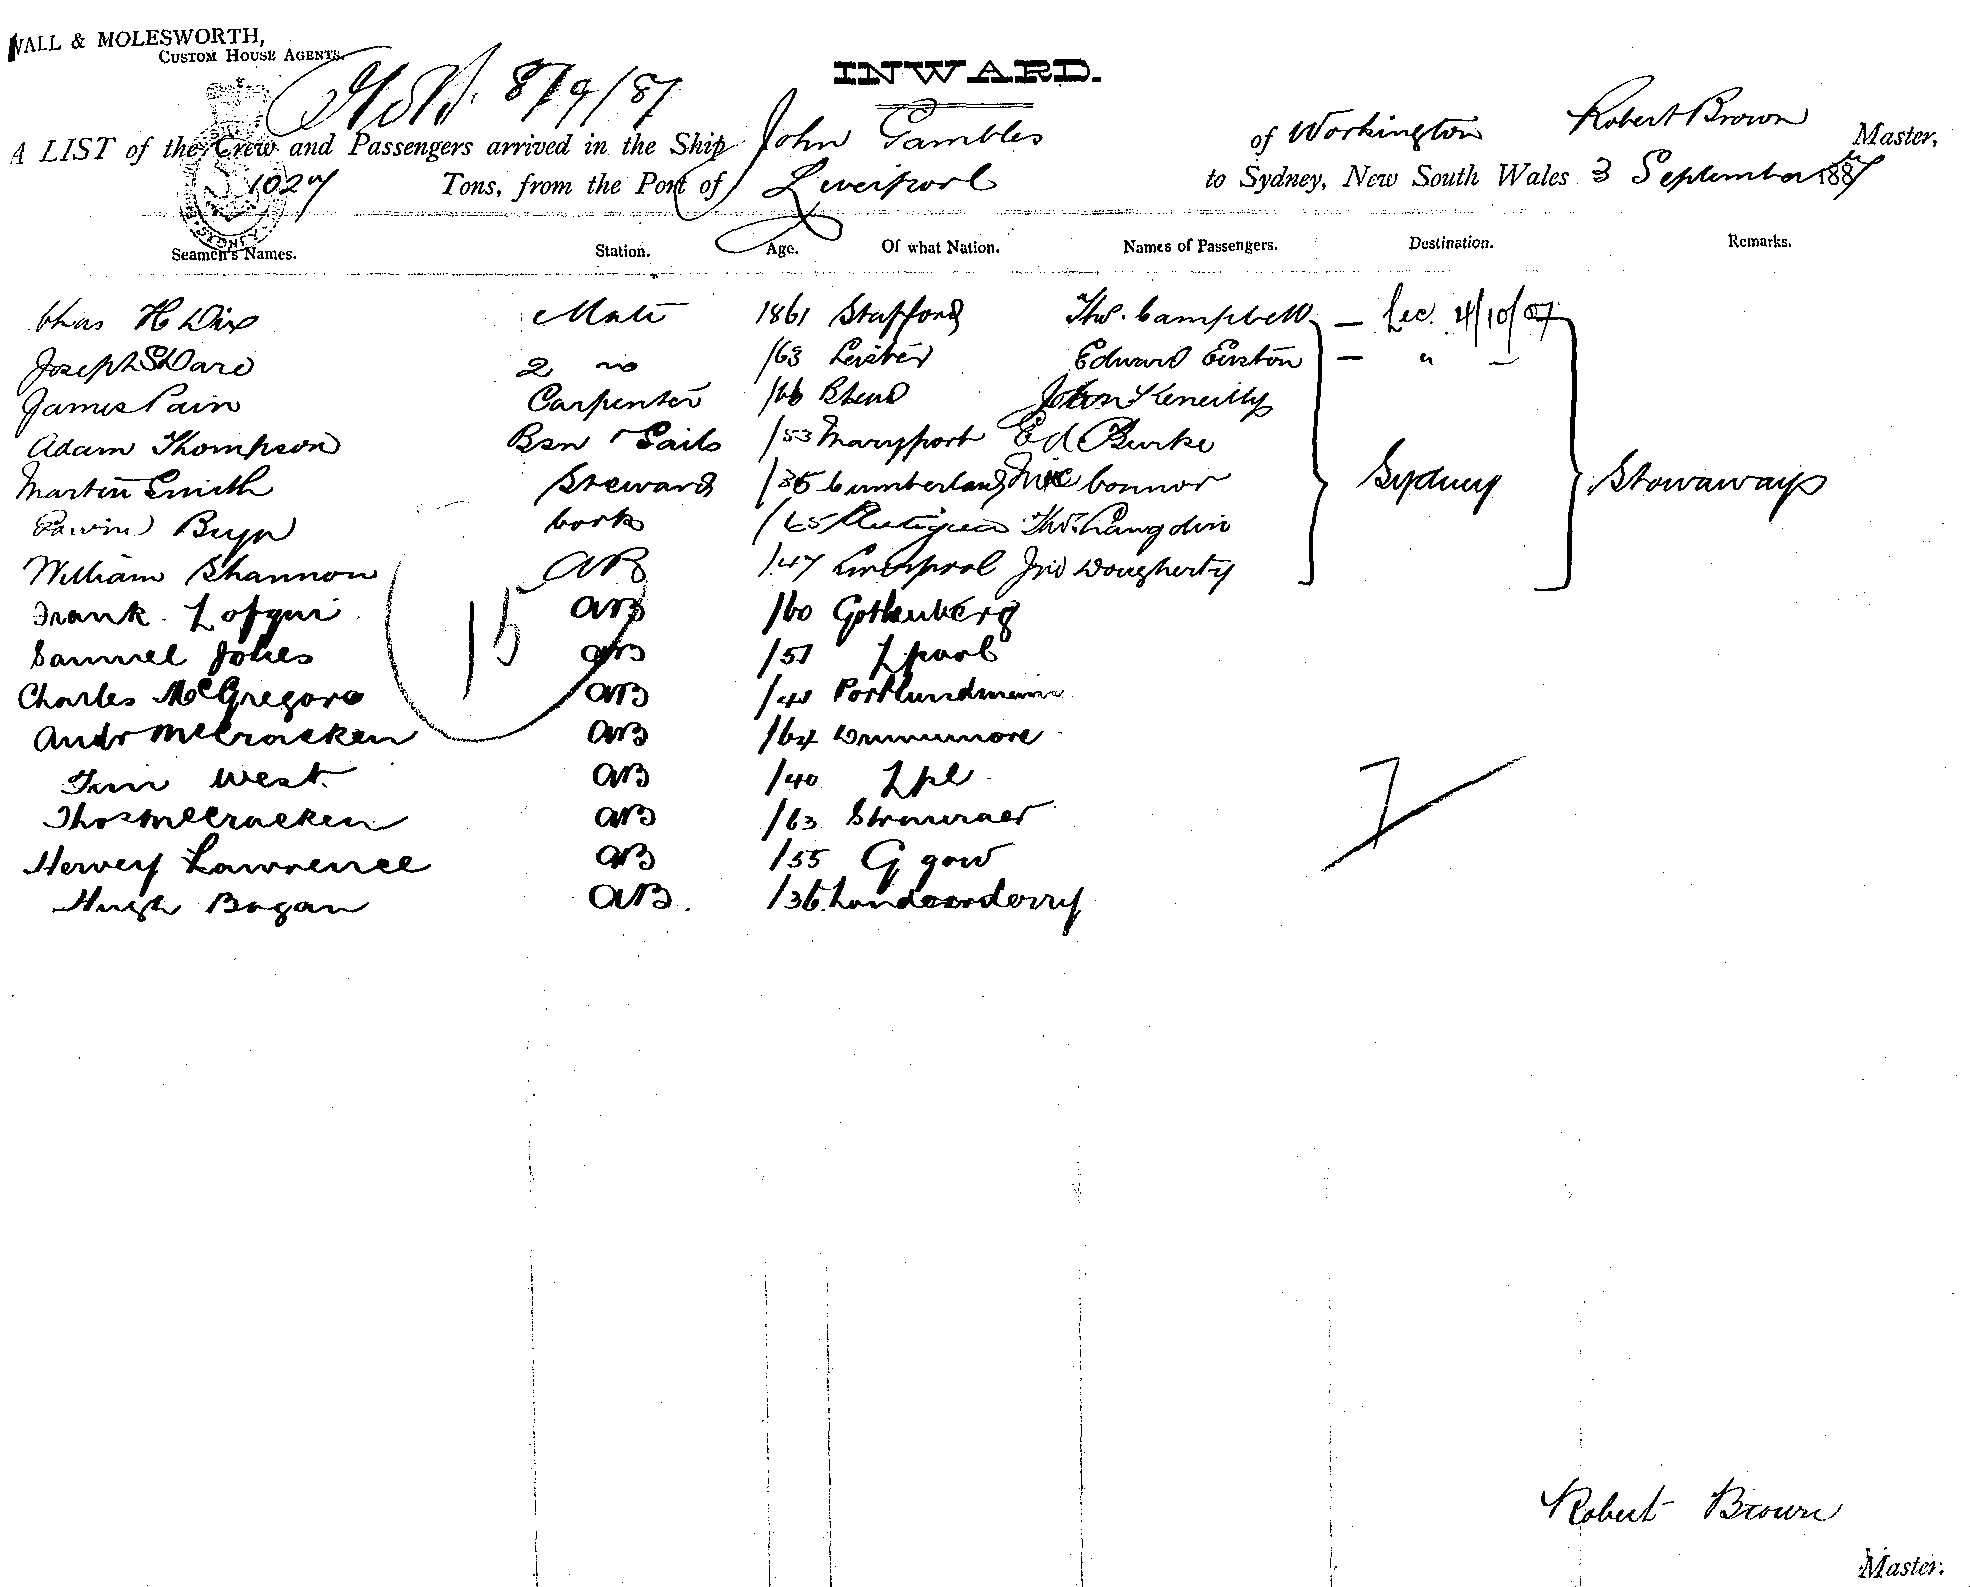 WALL & MOLESWORTH,
CUSTOM HOUSE AGENTS.
8/9/87
INWARD.
A LIST of the Crew and Passengers arrived in the Ship John Gambles of Workington Robert Brown Master,
1027 Tons, from the Port of Liverpool to Sydney, New South Wales 3 September 1887
Seamen's Names. Station. Age. Of what Nation. Names of Passengers. Destination. Remarks.
Chas H Dix Mate 1861 Stafford Thos. Campbell — 4/10/87
Joseph S Ware 2 do /63 Edward Euston — " —
James Pain Carpenter /66 John Keneilly
Adam Thompson Bsn & Sails /53 Maryport Ed Burke
Martin Smith Steward /35 Cumberland Connor Sydney Stowaways
Edwin Cook /65 Antigua Thos. Langdin
William Shannon AB /47 Liverpool Jno Dougherty
Frank AB /60 Gothenberg
15
Samuel Jones AB /57 Lpool
Charles McGregor AB
Andr McCracken AB /64
West AB /40 Lpl
7
Thos McCracken AB /63 Stranraer
Hervey Lawrence AB /55 G gow
Hugh Bogan AB. /36 Londonderry
Robert Brown
Master.